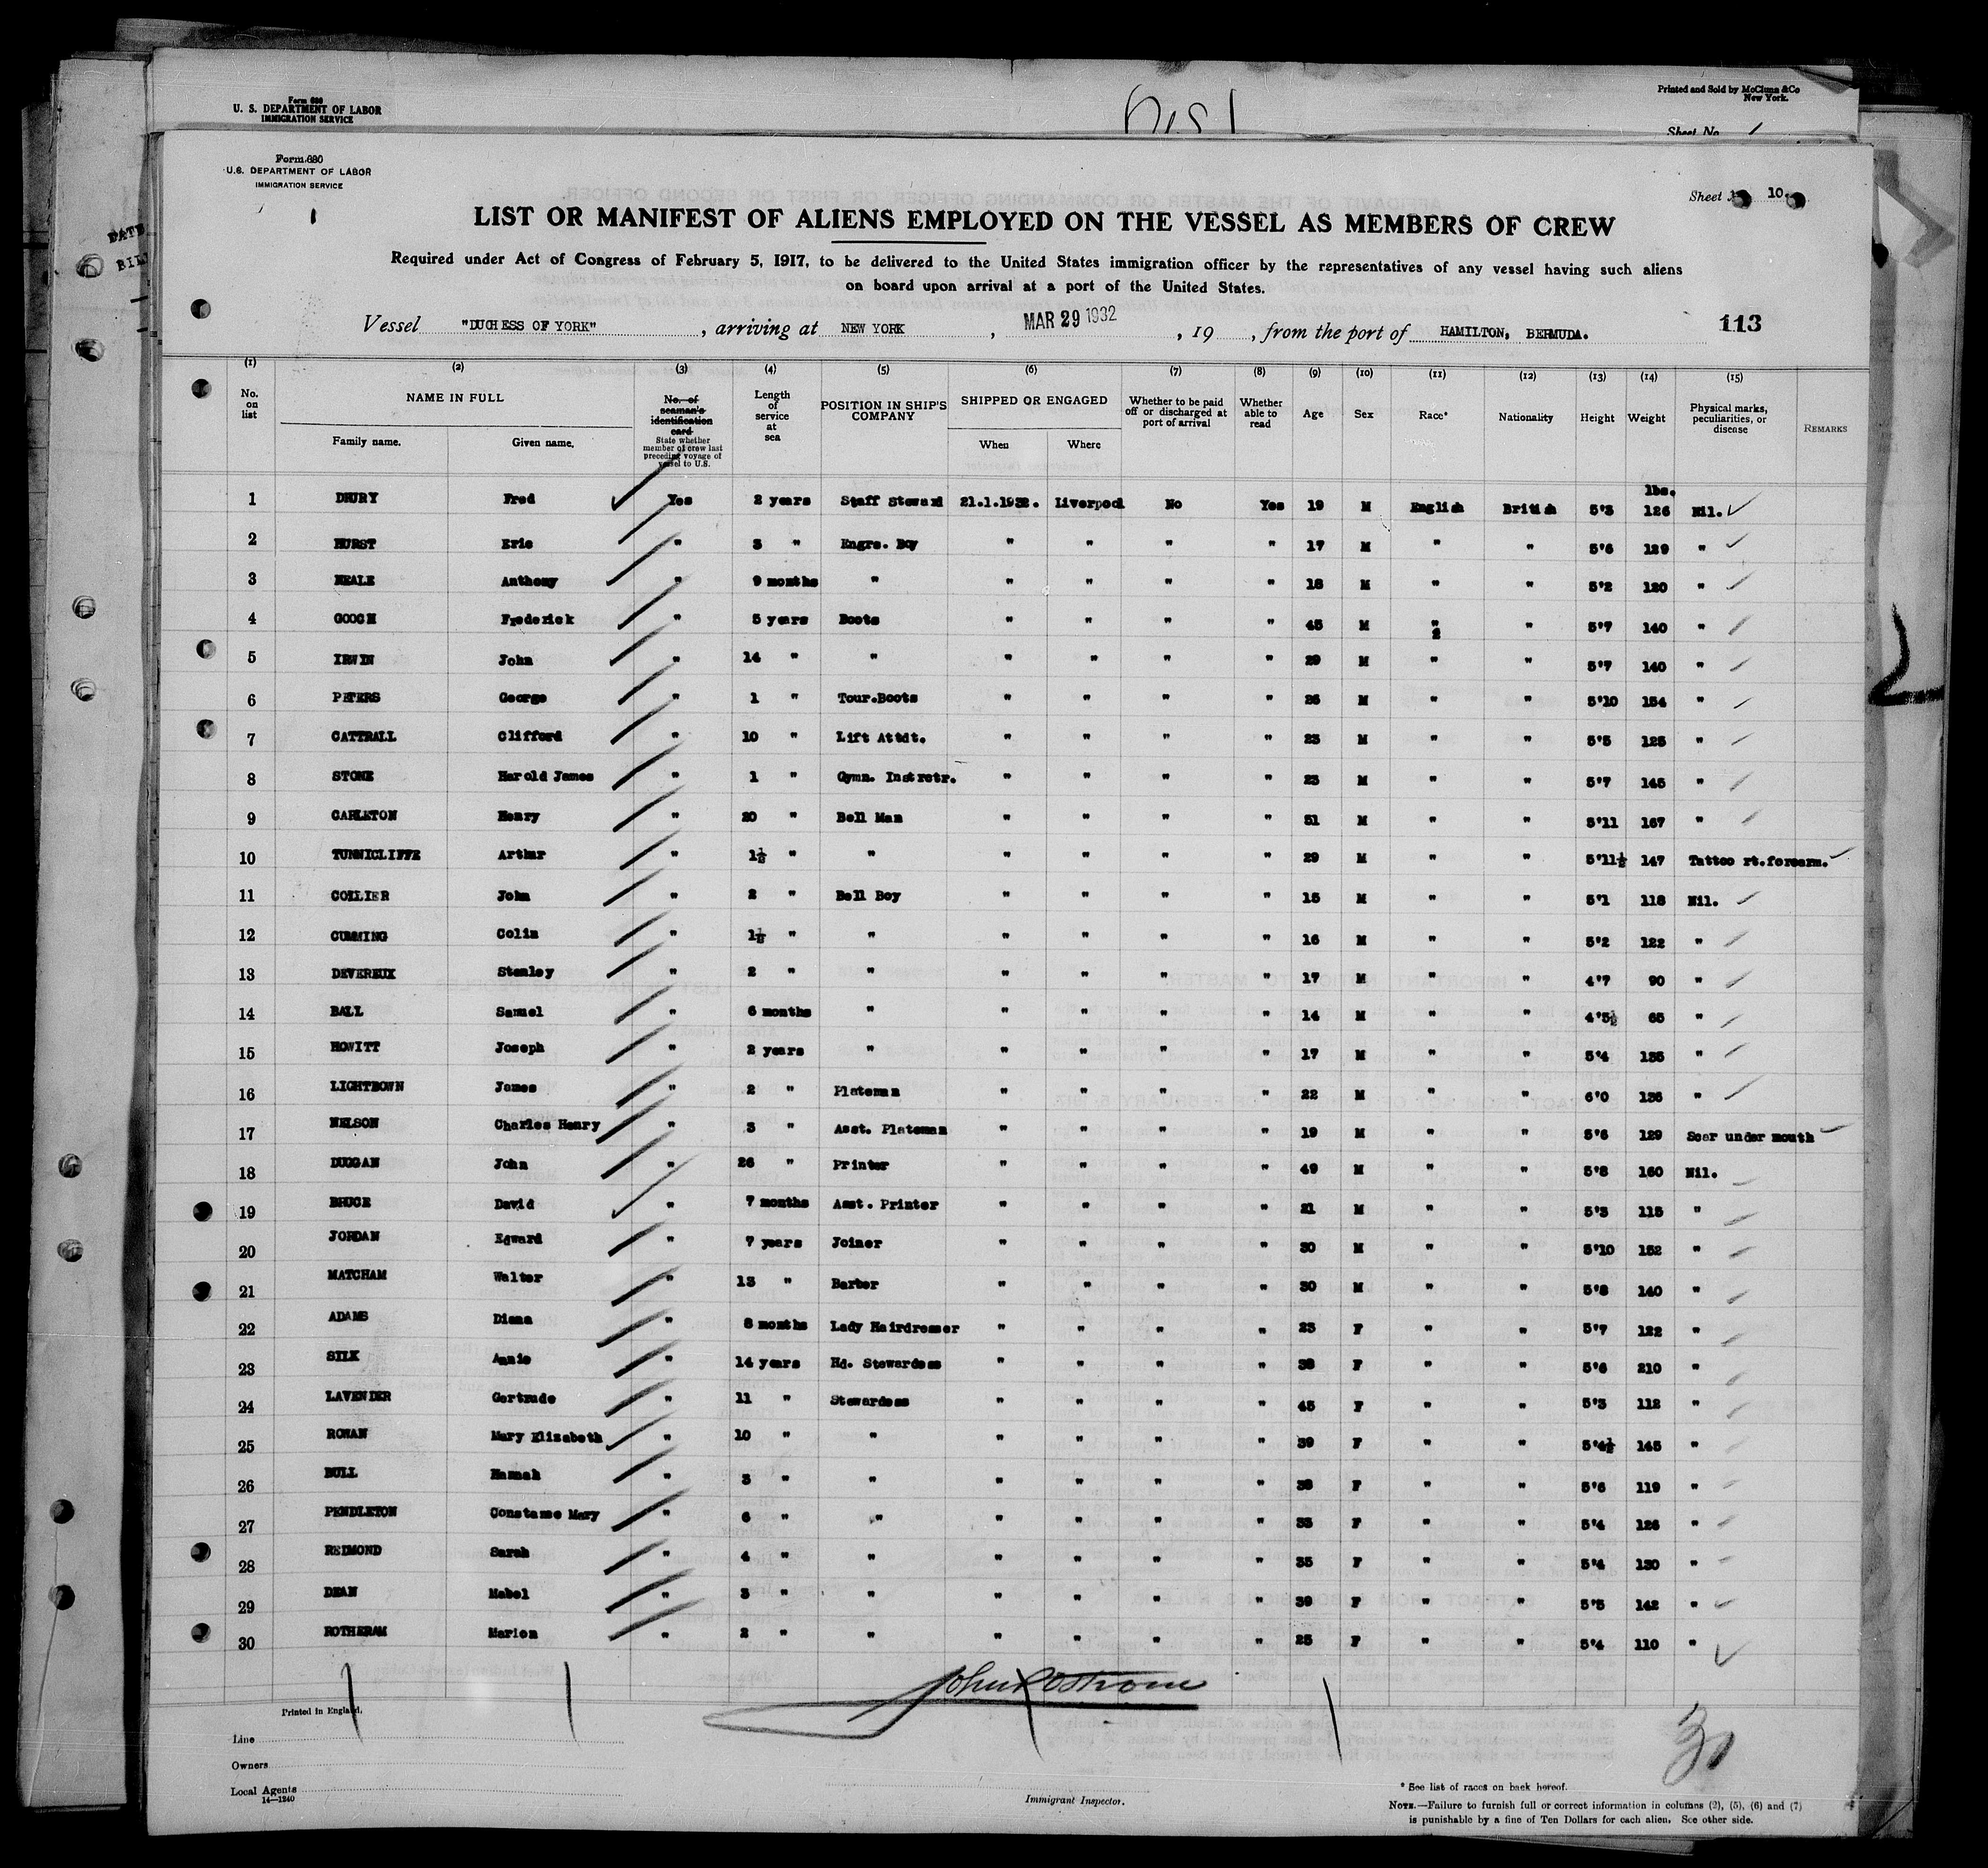 Form 680
U. S. DEPARTMENT OF LABOR
IMMIGRATION SERVICE
Printed and Sold by McClunn &Co
New York.
Sheet No. 1
Form 680
U.S. DEPARTMENT OF LABOR
IMMIGRATION SERVICE
Sheet 10.
LIST OR MANIFEST OF ALIENS EMPLOYED ON THE VESSEL AS MEMBERS OF CREW
Required under Act of Congress of February 5, 1917, to be delivered to the United States immigration officer by the representatives of any vessel having such aliens
on board upon arrival at a port of the United States.
Vessel "DUCHESS OF YORK", arriving at NEW YORK, MAR 29 1932, 19 , from the port of HAMILTON, BERMUDA. 113
(1) (2) (3) (4) (5) (6) (7) (8) (9) (10) (11) (12) (13) (14) (15)
No. on list NAME IN FULL Family name. Given name. No. of seaman's identification card State whether member of crew last preceding voyage of vessel to U.S. Length of service at sea POSITION IN SHIP'S COMPANY SHIPPED OR ENGAGED When Where Whether to be paid off or discharged at port of arrival Whether able to read Age Sex Race* Nationality Height Weight Physical marks, peculiarities, or disease REMARKS
lbs.
1 DRURY Fred Yes 2 years Staff Steward 21.1.1932. Liverpool No Yes 19 M English British 5'3 126 Nil.
2 HURST Eric " 3 " Engrs. Boy " " " " 17 M " " 5'6 129 "
3 NEALE Anthony " 9 months " " " " " 18 M " " 5'2 120 "
4 GOOCH Frederick " 5 years Boots " " " " 45 M " " 5'7 140 "
5 IRWIN John " 14 " " " " " " 29 M " " 5'7 140 "
6 PETERS George " 1 " Tour.Boots " " " " 26 M " " 5'10 154 "
7 CATTRALL Clifford " 10 " Lift Attdt. " " " " 23 M " " 5'5 125 "
8 STONE Harold James " 1 " Gymn. Instrctr. " " " " 23 M " " 5'7 145 "
9 CARLETON Henry " 20 " Bell Man " " " " 51 M " " 5'11 167 "
10 TUNNICLIFFE Arthur " 1½ " " " " " " 29 M " " 5'11½ 147 Tattoo rt.forearm.
11 COLLIER John " 2 " Bell Boy " " " " 15 M " " 5'1 118 Nil.
12 CUMMING Colin " 1½ " " " " " " 16 M " " 5'2 122 "
13 DEVEREUX Stanley " 2 " " " " " " 17 M " " 4'7 90 "
14 BALL Samuel " 6 months " " " " " 14 M " " 4'5½ 65 "
15 HOWITT Joseph " 2 years " " " " " 17 M " " 5'4 135 "
16 LIGHTBOWN James " 2 " Plateman " " " " 22 M " " 6'0 136 "
17 NELSON Charles Henry " 3 " Asst. Plateman " " " " 19 M " " 5'6 129 Scar under mouth
18 DUGGAN John " 26 " Printer " " " " 49 M " " 5'8 160 Nil.
19 BRUCE David " 7 months Asst. Printer " " " " 21 M " " 5'3 115 "
20 JORDAN Edward " 7 years Joiner " " " " 30 M " " 5'10 152 "
21 MATCHAM Walter " 13 " Barber " " " " 30 M " " 5'8 140 "
22 ADAMS Diana " 8 months Lady Hairdresser " " " " 23 F " " 5'7 122 "
23 SILK Annie " 14 years Hd. Stewardess " " " " 38 F " " 5'6 210 "
24 LAVENDER Gertrude " 11 " Stewardess " " " " 45 F " " 5'3 112 "
25 ROWAN Mary Elizabeth " 10 " " " " " " 39 F " " 5'4½ 145 "
26 BULL Hannah " 3 " " " " " " 38 F " " 5'6 119 "
27 PENDLETON Constance Mary " 6 " " " " " " 33 F " " 5'4 126 "
28 REDMOND Sarah " 4 " " " " " " 35 F " " 5'4 130 "
29 DEAN Mabel " 3 " " " " " " 39 F " " 5'5 142 "
30 ROTHERAM Marion " 2 " " " " " " 25 F " " 5'4 110 "
Printed in England.
Line
Owners
Local Agents
14—1240
Immigrant Inspector.
30
* See list of races on back hereof.
NOTE.—Failure to furnish full or correct information in columns (2), (5), (6) and (7)
is punishable by a fine of Ten Dollars for each alien. See other side.